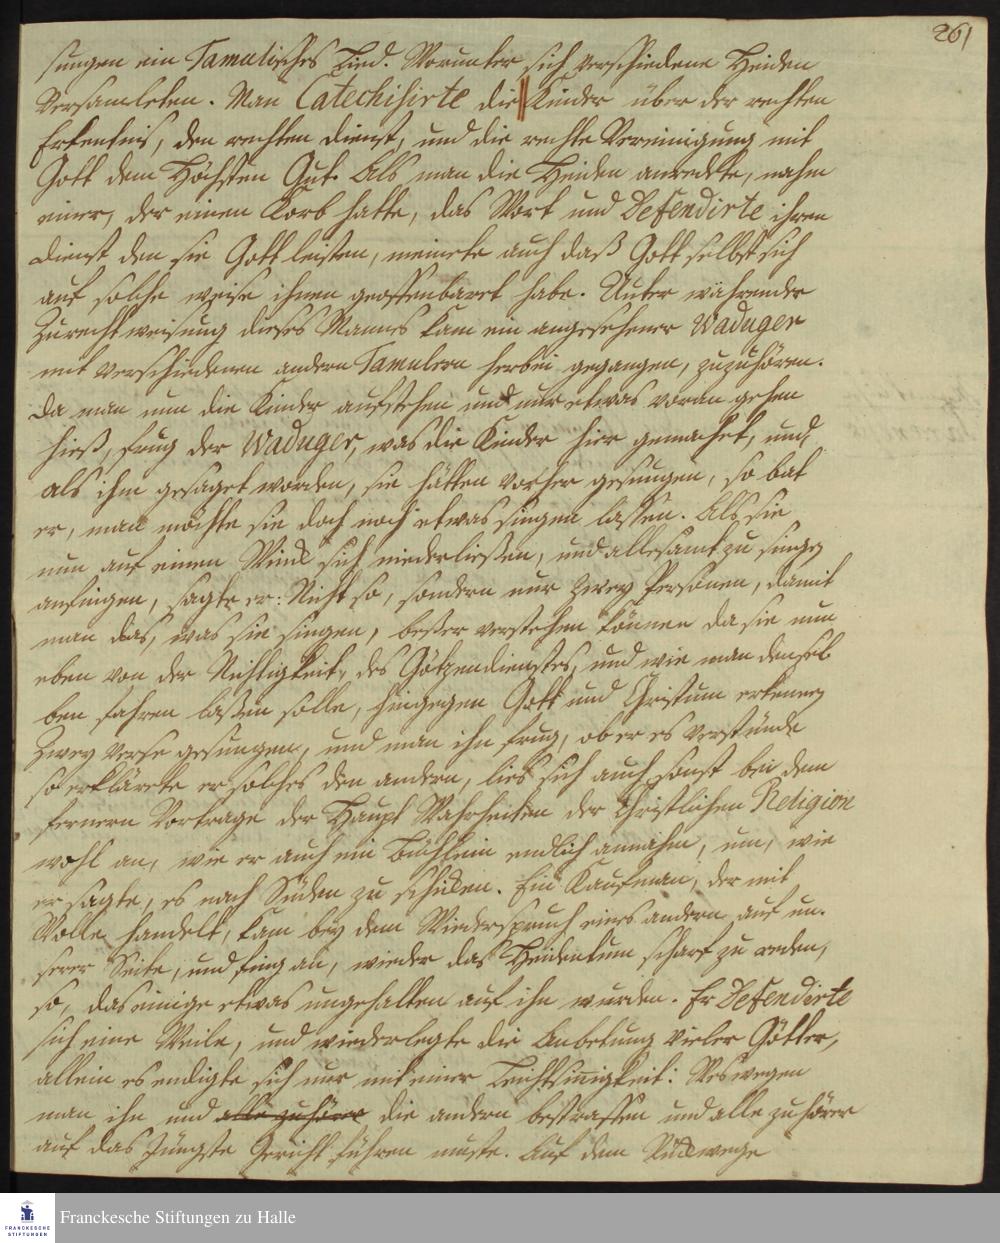 261
sungen ein Tamulisches Lied. Worunter sich verschiedene Heiden
versamleten. Man Catechisirte die Kinder über der rechten
Erkentniß, den rechten dienst, und die rechte Vereinigung mit
Gott dem Höchsten Gut. Als man die Heiden anredete, nahm
einer, der einen Korb hatte, das Wort und Defendirte ihren
dienst den sie Gott leisten, meinete auch daß Gott selbst sich
auf solche weise ihnen geoffenbaret habe. Unter währender
Zurechtweisung dieses Mannes kam ein angesehener Waduger
mit verschiedenen andern Tamulern herbei gegangen, zuzuhören.
Da man nun die Kinder aufstehen und nur etwas voran gehen
hieß, frug der Waduger, was die Kinder hier gemacht, und,
als ihm gesaget worden, sie hätten vorher gesungen, so bat
er, man möchte sie doch noch etwas singen lassen. Als sie
nun auf einen Wink sich niederließen, und allesamt zu singen
anfingen, sagte er: Nicht so, sondern nur zwey Personen, damit
man das, was sie singen, beßer verstehen könne. da sie nun
eben von der Nichtigkeit, des Götzendienstes, und wie man densel
ben fahren laßen solle, hingegen Gott und Christum erkennen
Zwey Verse gesungen, und man ihn frug, ob er es verstünde
so erklärete er solches den andern, lies sich auch sonst bei dem
fernern Vortrage der Haupt Wahrheiten der Christlichen Religion
wohl an, wie er auch ein Büchlein endlich annahm, um, wie
er sagte, es nach Süden zu schicken. Ein Kaufman, der mit
Wolle handelt, kam bey dem Wiederspruch eines andern auf un-
serer Seite, und fing an, wieder das Heidentum scharf zu reden,
so, das einige etwas ungehalten auf ihn wurden. Er Defendirte
sich eine Weile, und wiederlegte die Anbetung vieler Götter,
allein es endigte sich nur mit einer Leichtsinnigkeit: Weswegen
man ihn und alle zuhörer die andern bestraffen und alle zuhörer
auf das Jüngste Gericht führen muste. Auf dem Rückwege
Franckesche Stiftungen zu Halle
FRANCKESCHE
STIFTUNGEN